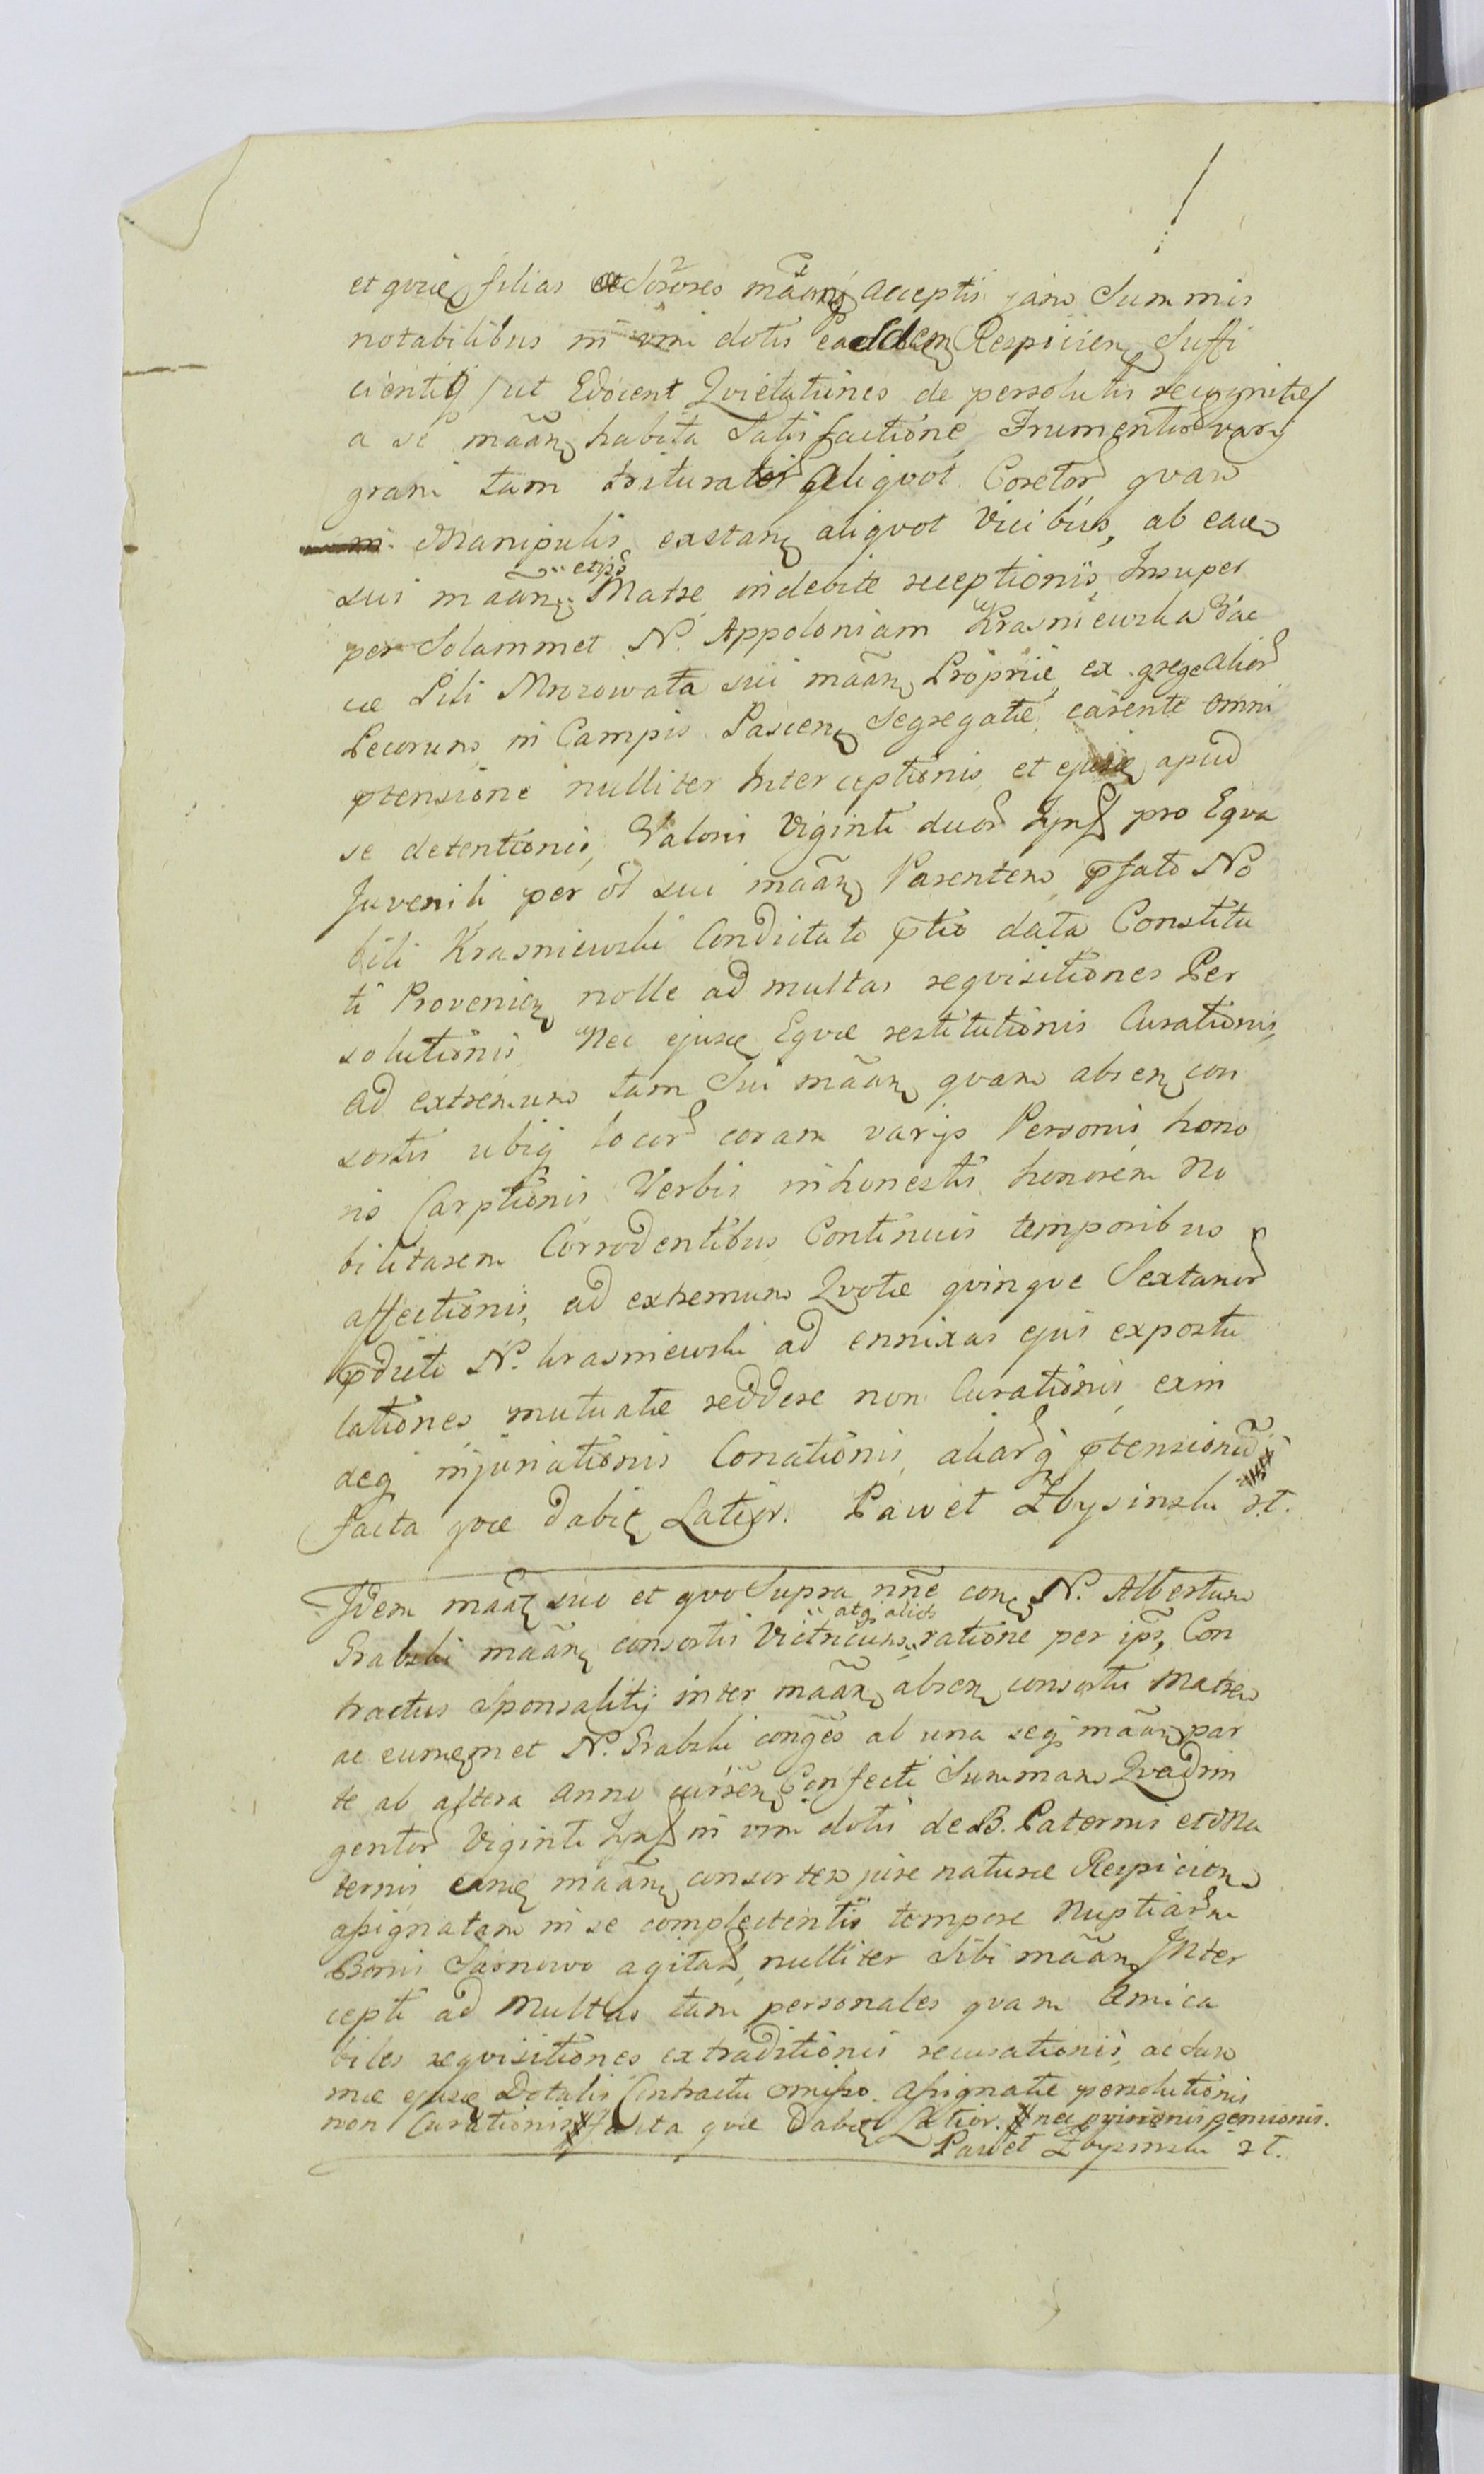 et qvie filias et Sorores mãanq acceptis jam Summis
notabilibus in vim dotis easdem Respicien Suffi
cientiq / ut Edocent Qvietationes de persolutis recognitæ /
a se mãanq habita Satisfactione, Frumentor varij
grani tam triturator aliqvot Coretor qvam
Manipulis extanq aliqvot vicibus, ab eae
sui mãanq etqs Matre indebite receptionis, Insuper
per Solammet N. Appoloniam Krasniewska Vac
cæ Pili Mrozowata sui mãanq Propriæ, ex grege alior
Pecorum, in Campis Pascenq Segregatæ, carente omni
ptensione nulliter Interceptionis et ejusæ apud
se detentionis, Valoris Viginti duor flnr pro Eqva
Juvenili per sui mãanq Parentem, pfato No
bili Krasniewski Condictato ptio data Constitu
ti Provenienq nolle ad multas reqvisitiones Per
solutionis Nec ejusæ Eqvæ restitutionis Curationis,
ad extremum tam Sui mãanq qvam absenq con
sortis ubiq locor coram varijs Personis hono
ris Carptionis Verbis inhonestis honorem No
bilitarem Corrodentibus Continuis temporibus
affectionis, ad extremum Qvotæ qvinqve Sextanor
pdicto N. Krasniewski ad ennixas ejus expostu
lationes mutuatæ reddere non Curationis, exin
deq injuriationis Conationis, aliarq ptensionũ
facta qvæ dabit Latior. Paweł Zbysinski st.
Idem mãatq suo et qvo Supra nñe conq N. Albertum
Grabski mãanq consortis Victricum, atqs alios ratione per ips, Con
tractus Sponsalitij inter mãanq absenq consortis Matrem
ac eumqmet N. Grabski congẽs ab una seqs mãanq par
te ab altera Anno cursenq Confecti Summam Qvadrin
gentor Viginti flnr in vim dotis de B. Paternis et Ma
ternis eanq mãanq consortem jure naturæ Respicien
assignatam in se complectentis tempore Nuptiar in
Bonis Sarnowo agitar, nulliter Sibi mãanq Inter
cepti ad Multas tam personales qvam Amica
biles reqvisitiones extraditionis recusationis, ac Sum
mæ ejusæ Dotalis Contractu omisso. Assignatæ persolutionis
non Curationis facta qvæ Dabit Latior. nec pensionis.
Paweł Zbysinski st.